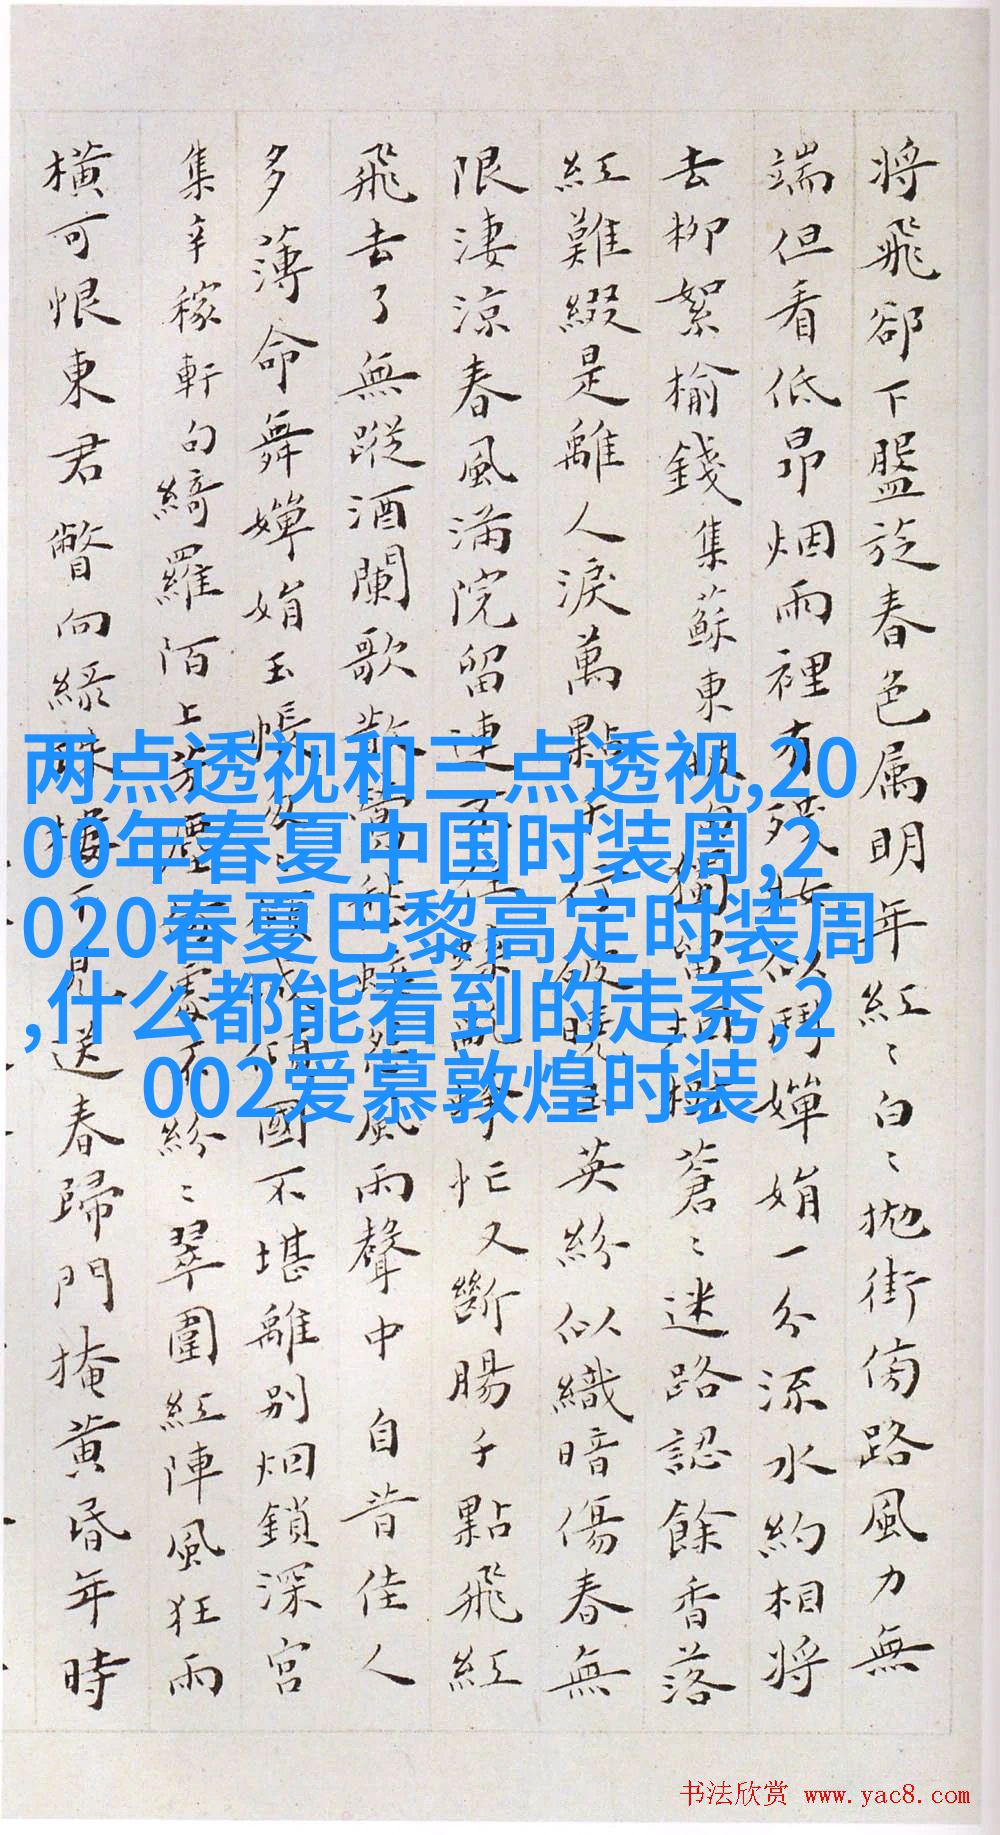 將飛卻下盤旋春色属明年紅〻白〻拋街傍路風力無
端但看低昂烟雨裡有殘妝似鬥嬋娟一分流水約相將
去柳絮榆錢集蘇東坡句獨留蒼〻迷路認餘香落
紅難綴是離人淚萬點千行晚玉英紛似織暗傷春無
限淒涼春風滿院留連不住忙又斷腸千點飛紅
飛去了無蹤酒闌歌散鶯愁風雨聲中 自昔佳人
多薄命舞嬋娟玉帳夜國不堪離別烟鎖深宮
集辛稼軒句綺羅陌上芳塵處不紛〻翠圍紅陣風狂雨
橫可恨東君瞥向緣珠樓見送春歸門掩黃昏年時
两点透视和三点透视,20
00年春夏中国时装周,2
020春夏巴黎高定时装周
,什么都能看到的走秀,2
002爱慕敦煌时装
书法欣赏 www.yac8.com